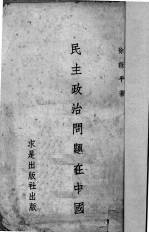 徐哲平著
民主政治問題在中國
求是出版社出版